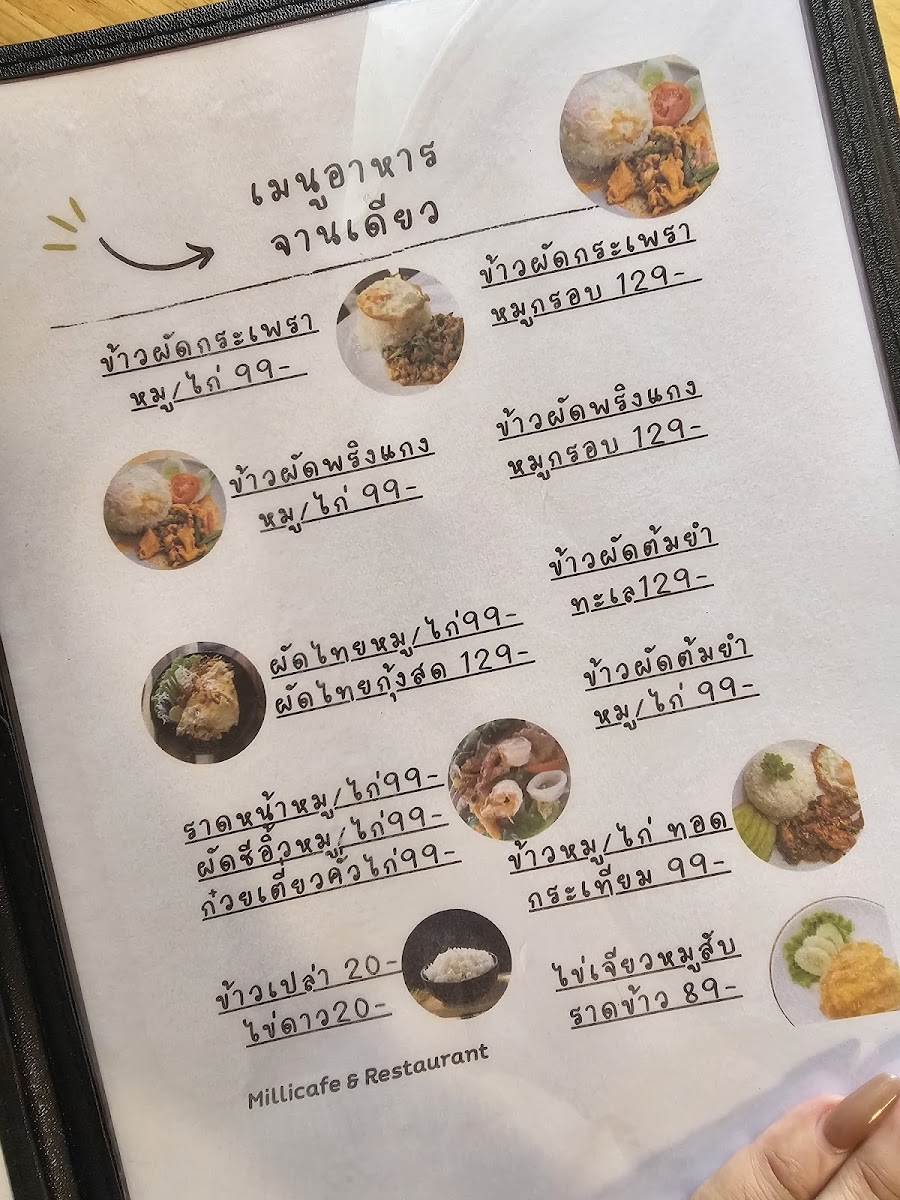 เมนูอาหาร
จานเดียว
ข้าวผัดกระเพรา
หมูกรอบ 129-
ข้าวผัดกระเพรา
หมู/ไก่ 99-
ข้าวผัดพริงแกง
หมูกรอบ 129-
ข้าวผัดพริงแกง
หมู/ไก่ 99-
ข้าวผัดต้มยำ
ทะเล129-
ผัดไทยหมู/ไก่99-
ผัดไทยกุ้งสด 129-
ข้าวผัดต้มยำ
หมู/ไก่ 99-
ราดหน้าหมู/ไก่99-
ผัดซีอิ้วหมู/ไก่99-
ก๋วยเตี่ยวคั่วไก่99-
ข้าวหมู/ไก่ ทอด
กระเทียม 99-
ข้าวเปล่า 20-
ไข่ดาว20-
ไข่เจียวหมูสับ
ราดข้าว 89-
Millicafe & Restaurant